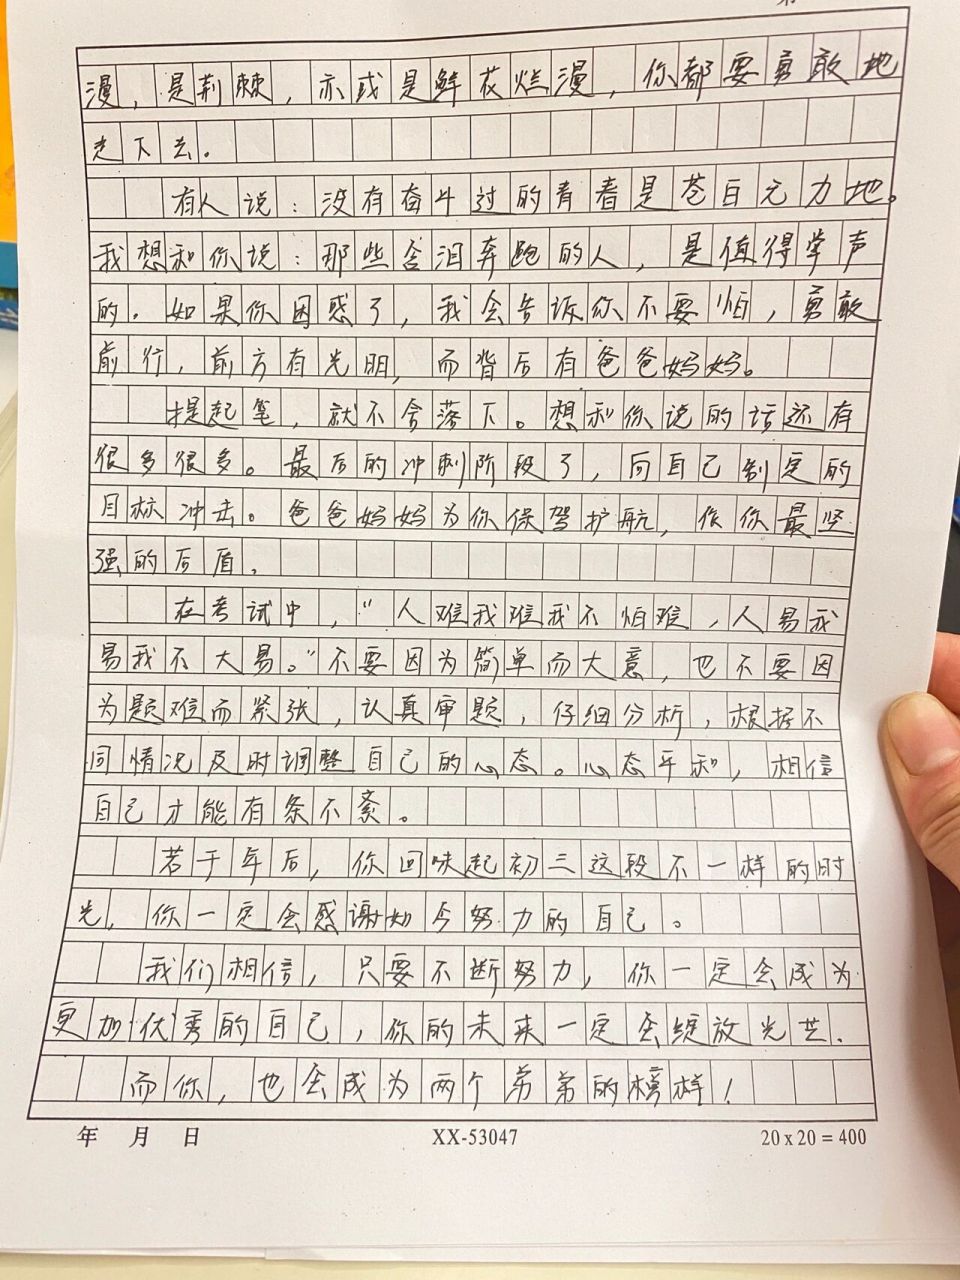 漫，是荆棘，亦或是鲜花烂漫，你都要勇敢地
走下去。
有人说：没有奋斗过的青春是苍白无力地。
我想和你说：那些含泪奔跑的人，是值得掌声
的．如果你困惑了，我会告诉你不要怕，勇敢
前行，前方有光明，而背后有爸爸妈妈。
提起笔，就不舍落下。想和你说的话还有
很多很多。最后的冲刺阶段了，向自己制定的
目标冲击。爸爸妈妈为你保驾护航，作你最坚
强的后盾．
在考试中，“人难我难我不怕难，人易我
易我不大易。”不要因为简单而大意，也不要因
为题难而紧张，认真审题，仔细分析，根据不
同情况及时调整自己的心态。心态平和，相信
自己才能有条不紊。
若干年后，你回味起初三这段不一样的时
光，你一定会感谢如今努力的自己。
我们相信，只要不断努力，你一定会成为
更加优秀的自己，你的未来一定会绽放光芒．
而你，也会成为两个弟弟的榜样！
年 月 日 XX-53047 20 x 20 = 400